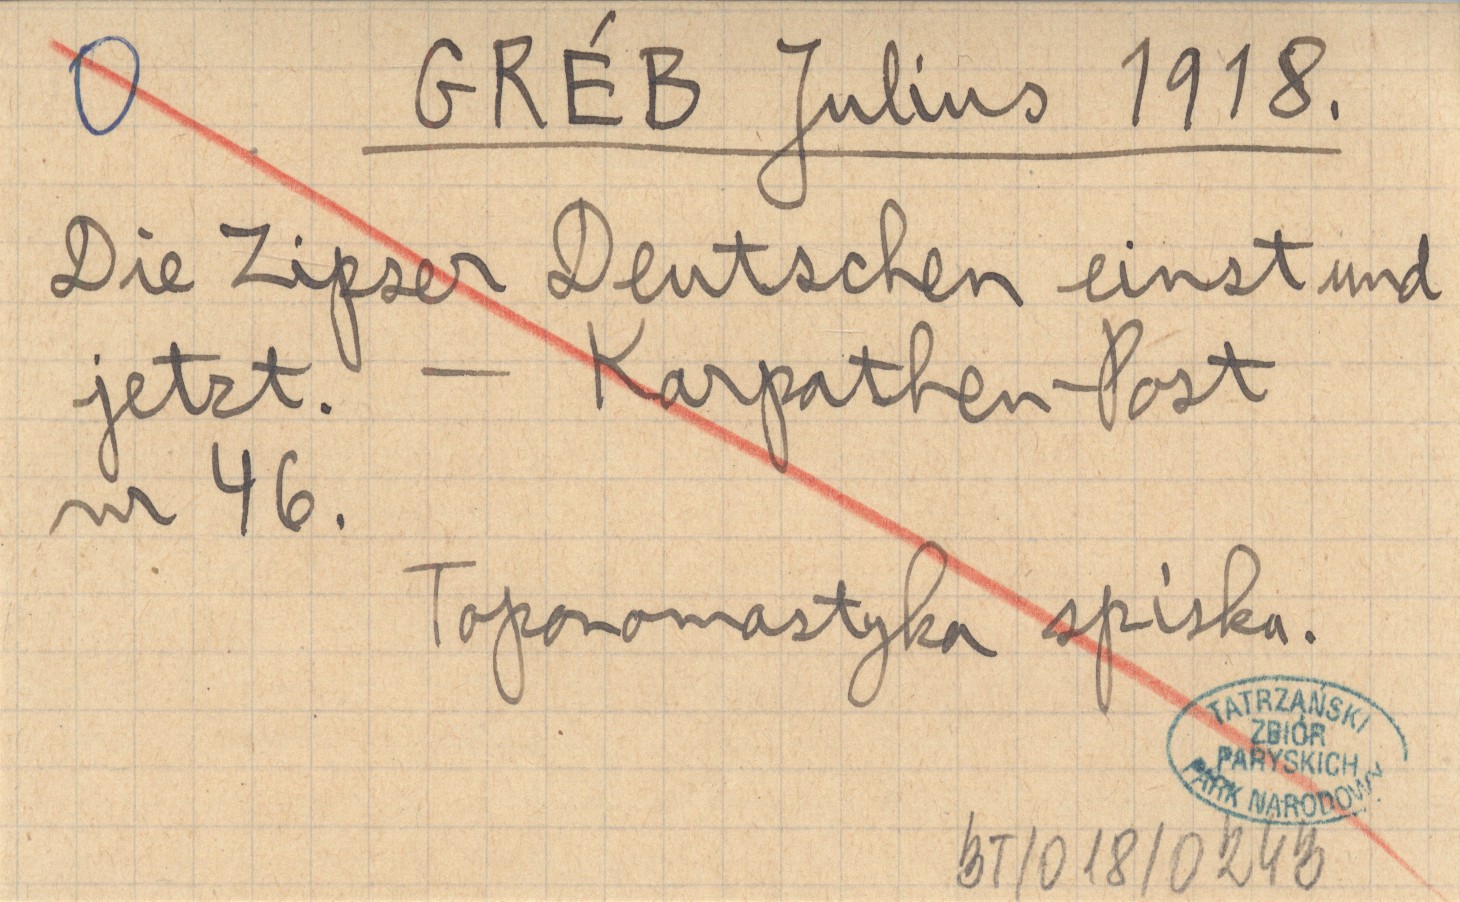 O GRÉB Julius 1918.
Die Zipser Deutschen einst und
jetzt. — Karpathen-Post
nr 46.
Toponomastyka spiska.
TATRZAŃSKI
ZBIÓR
PARYSKICH
PARK NARODOWY
BT/018/0243